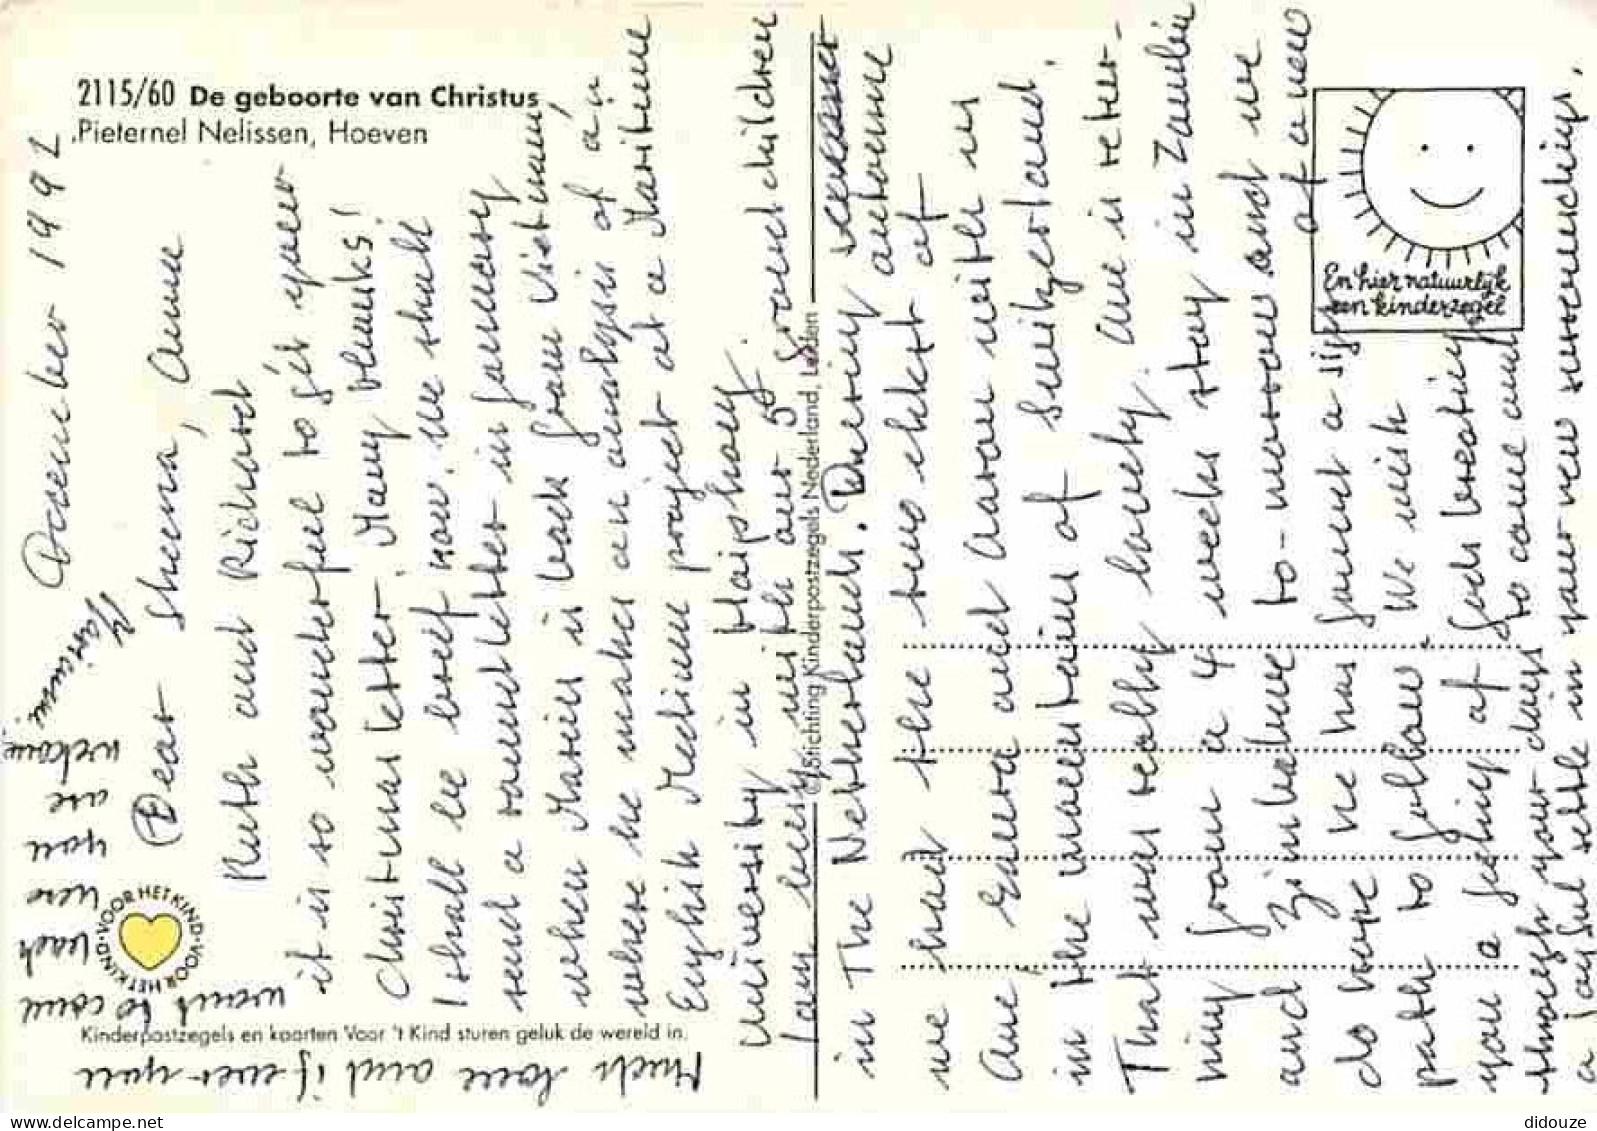 2115/60 De geboorte van Christus
Pieternel Nelissen, Hoeven
December 1992
Dear Sheena, Anne
Ruth and Richard
it is so wonderful to get your
Christmas letter. Many thanks!
I shall be brief now. We shall
send a roundletter in January
when Marius is back from Vietnam,
where he makes an analysis of an
English Medium project at a Maritime
University in Haiphong.
I am busy with our 5 grandchildren
in The Netherlands. During autumn
we had the two eldest of
Ane Enura and Aaron with us
in the mountains of Switzerland.
That was really lovely. Ane is retur-
ning from a 4 weeks stay in Zambia
and Zimbabwe to-morrow and we
do hope he has found a sign of a new
path to follow. We wish
you a feeling of God's
through your days to come and
a joyful settle in your new surroundings.
Much love and if ever you
want to come
back here
you are
welcome
Marianne
VOOR HET KIND · VOOR HET KIND
Kinderpostzegels en kaarten Voor 't Kind sturen geluk de wereld in.
© Stichting Kinderpostzegels Nederland, Leiden
En hier natuurlijk
een kinderzegel
didouze